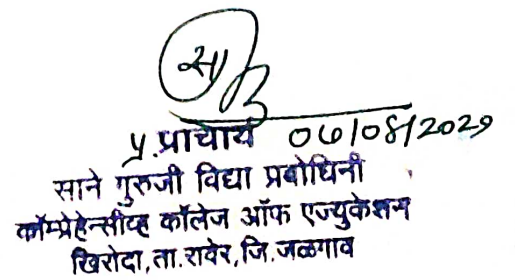 प्र.प्राचार्य ०७/०४/२०२१
साने गुरुजी विद्या प्रबोधिनी
कॉम्प्रेहेन्सीव्ह कॉलेज ऑफ एज्युकेशन
खिरोदा,ता.रावेर,जि.जळगाव